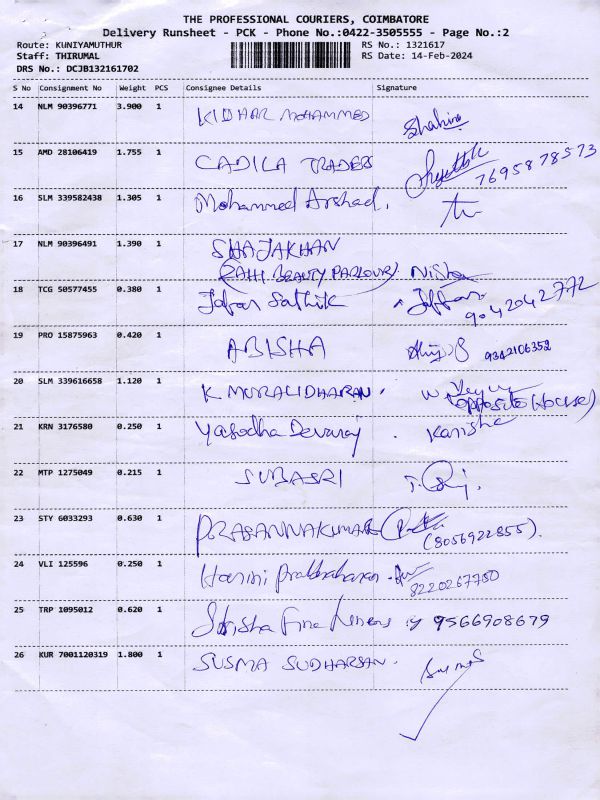 THE PROFESSIONAL COURIERS, COIMBATORE
Delivery Runsheet - PCK - Phone No.:0422-3505555 - Page No.:2
Route: KUNIYAMUTHUR RS No.: 1321617
Staff: THIRUMAL RS Date: 14-Feb-2024
DRS No.: DCJB132161702
S No Consignment No Weight PCS Consignee Details Signature
14 NLM 90396771 3.900 1 KIDHAR MOHAMMED Shahira
15 AMD 28106419 1.755 1 CADILA TRADERS 7695878573
16 SLM 339582438 1.305 1 Mohammed Arshad.
17 NLM 90396491 1.390 1 SHAJAKHAN
(RAHI BEAUTY PARLOUR) Nisha
18 TCG 50577455 0.380 1 Jafar Sathik Jaffar
9042042772
19 PRO 15875963 0.420 1 ABISHA 9342106352
20 SLM 339616658 1.120 1 K MURALIDHARAN.
opposite (House)
21 KRN 3176580 0.250 1 Yasodha Devaraj . Kanisha
22 MTP 1275049 0.215 1 SUBASRI
23 STY 6033293 0.630 1 PRASANNAKUMAR
(8056922855).
24 VLI 125596 0.250 1 Harini Prabhakaran
8220267750
25 TRP 1095012 0.620 1 Shrisha Fine 9566908679
26 KUR 7001120319 1.800 1 SUSMA SUDHARSAN.